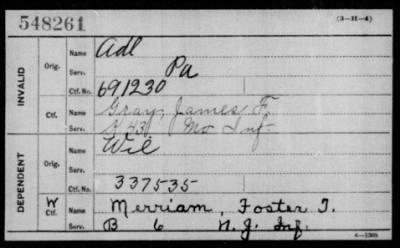 548261
(3-31-4)
INVALID
Orig.
Name Adl
Serv. Pa
Ctf. No. 691230
Ctf.
Name Gray, James F.
Serv. K 43 Mo Inf
DEPENDENT
Orig.
Name Wil
Serv.
Ctf. No. 337535
W
Ctf.
Name Merriam, Foster J.
Serv. B 6 N.J. Inf.